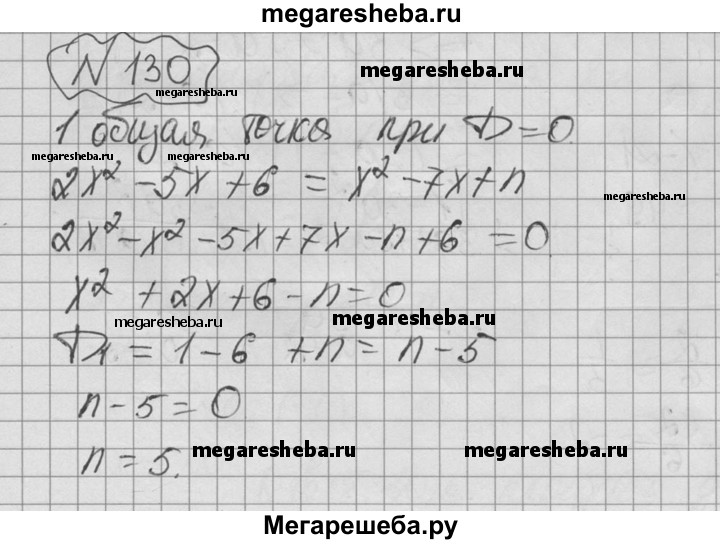 megaresheba.ru
N 130
megaresheba.ru
megaresheba.ru
1 общая точка при D=0
megaresheba.ru megaresheba.ru
2x² -5x +6 = x² -7x+n
megaresheba.ru
2x²-x² -5x+7x -n+6 =0
x² +2x+6-n=0
megaresheba.ru megaresheba.ru
D₁ = 1-6 +n= n-5
n-5=0
n=5.
megaresheba.ru megaresheba.ru
Мегарешеба.ру